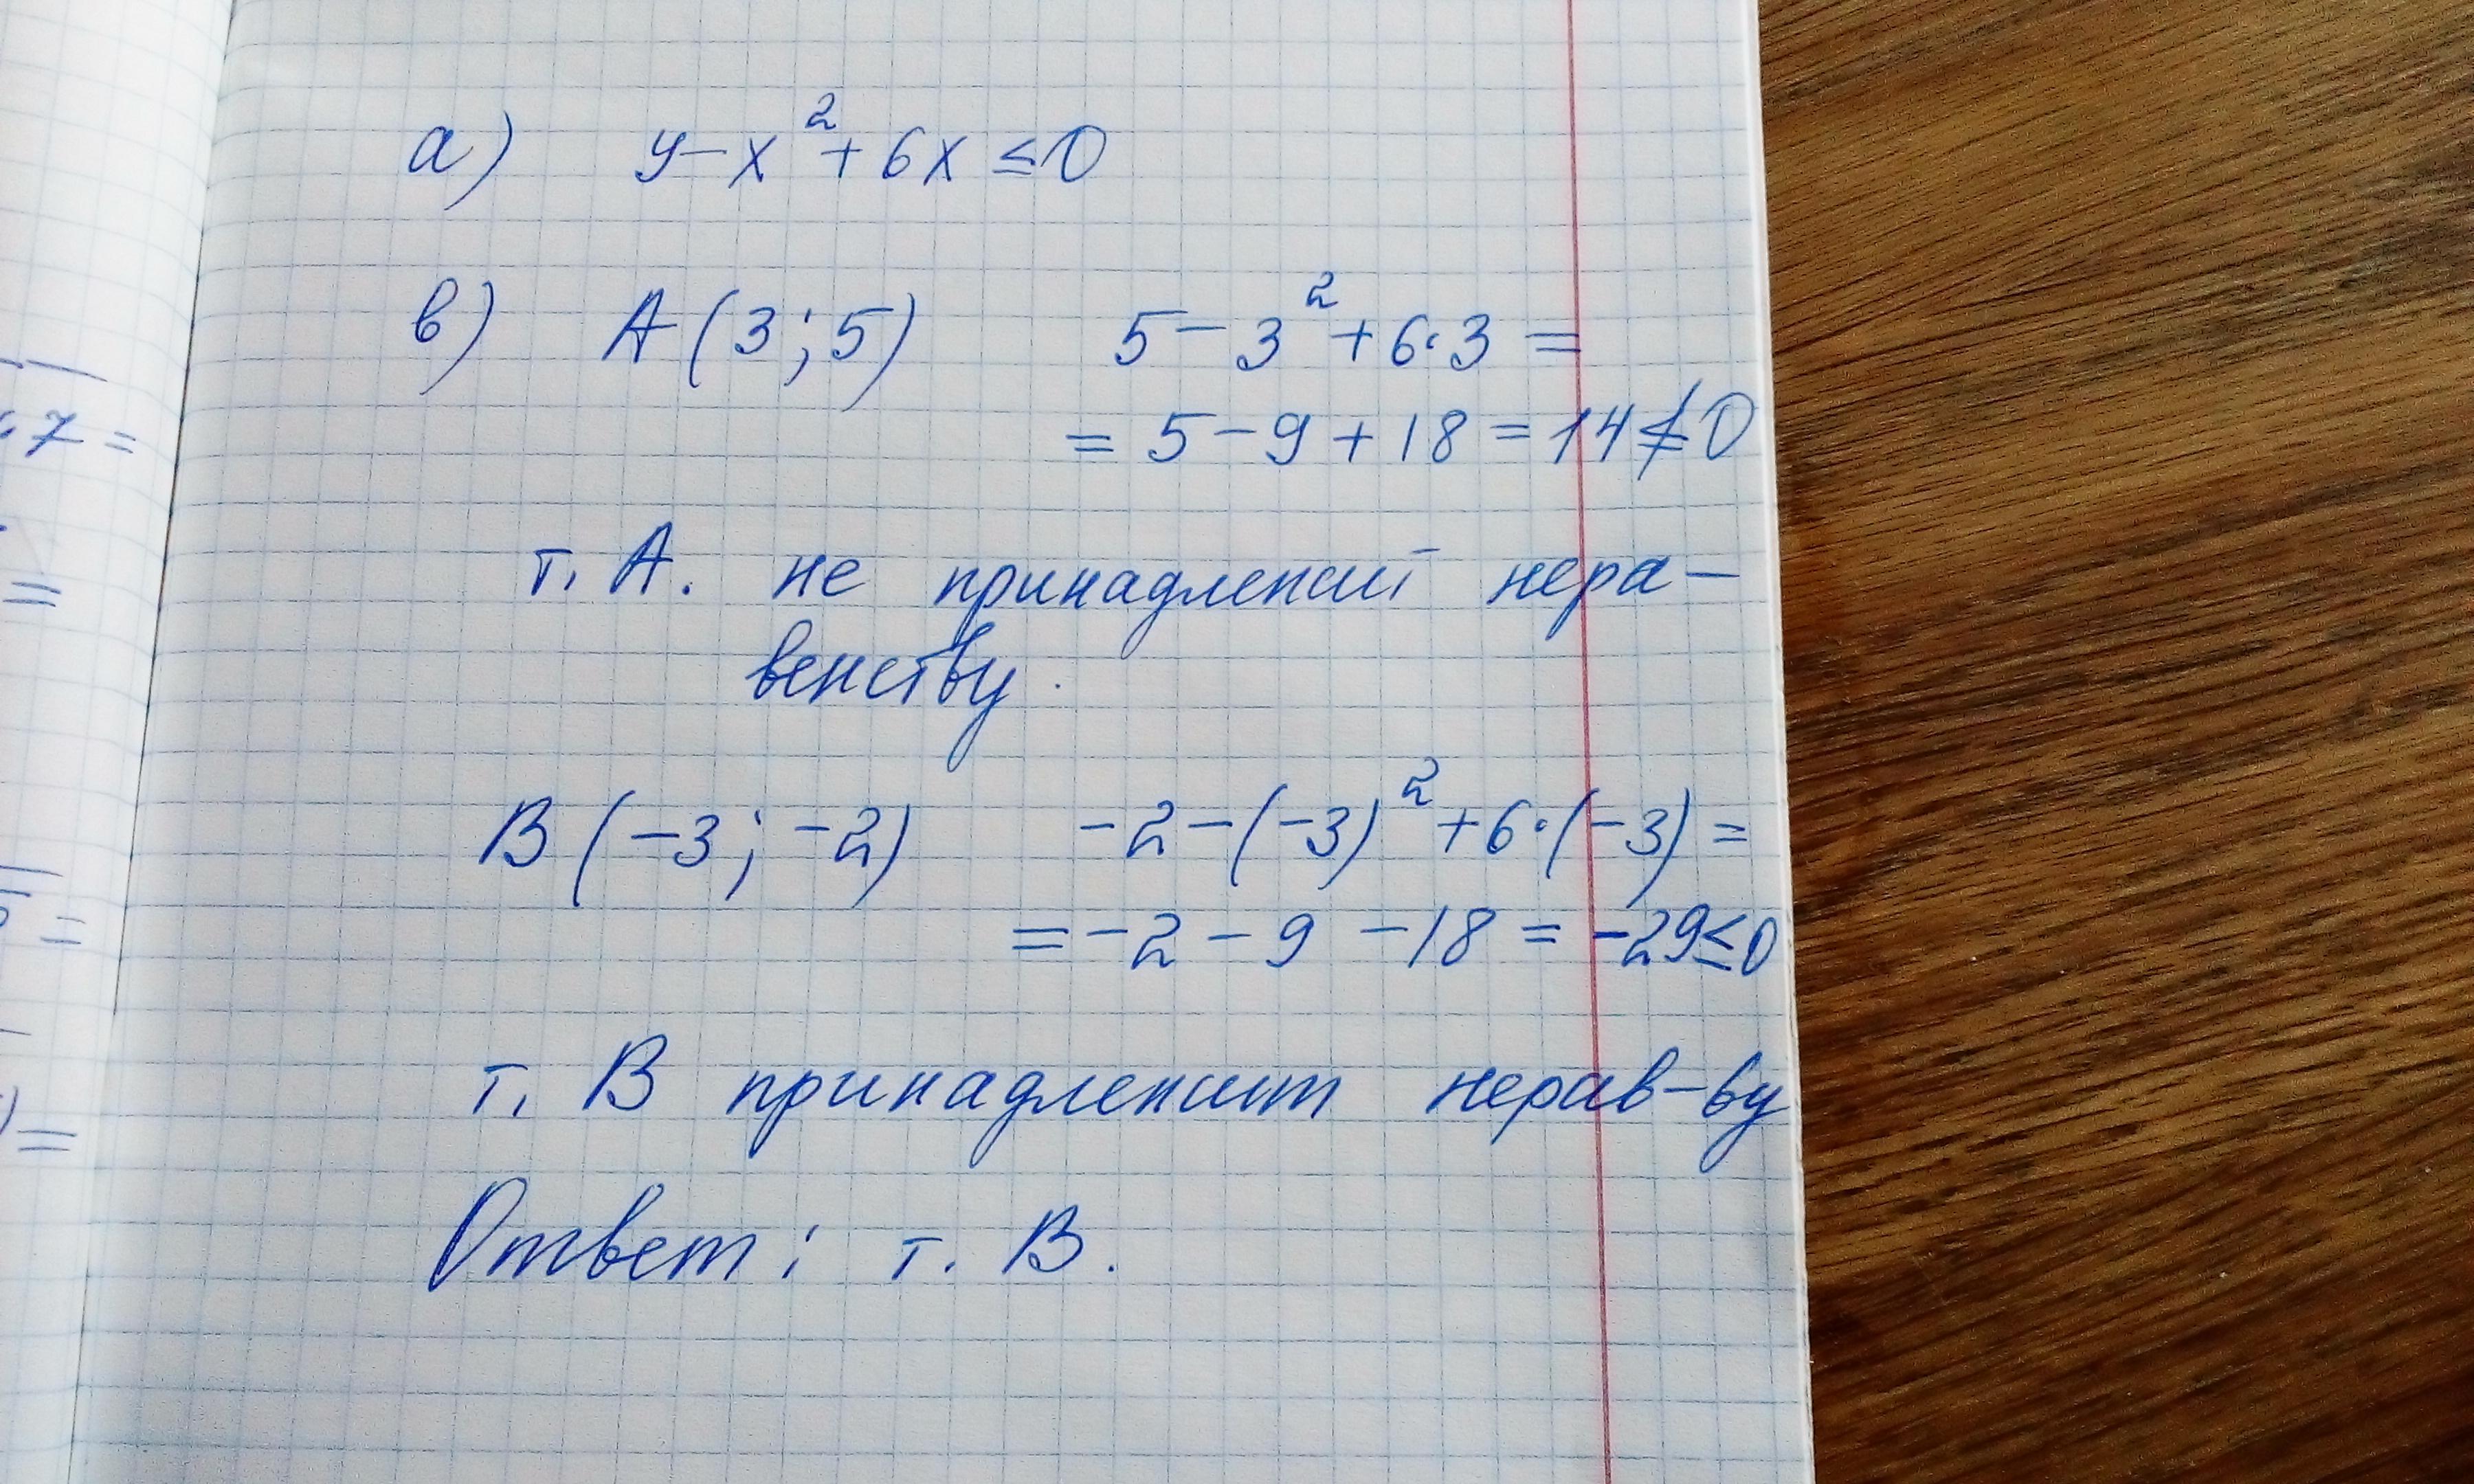 а) y-x²+6x≤0
в) A(3;5) 5-3²+6·3=
=5-9+18=14≰0
т. А. не принадлежит нера-
венству.
B(-3;-2) -2-(-3)²+6·(-3)=
=-2-9-18=-29≤0
т. В принадлежит нерав-ву
Ответ: т. В.
·7=
=
=
)=